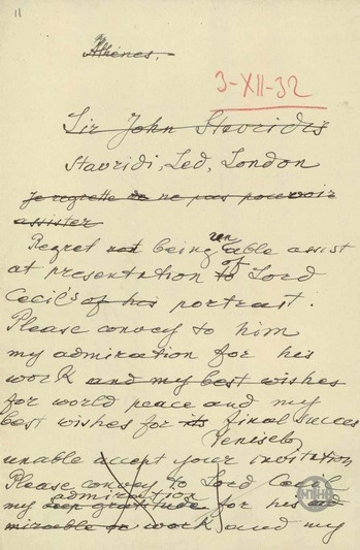 11
Athènes.
3-XII-32
Sir John Stavridis
Stavridi, Led, London
Je regrette de ne pas pouvoir
assister
Regret not being unable assist
at presentation to of Lord
Cecil's of his portrait.
Please convey to him
my admiration for his
work and my best wishes
for world peace and my
best wishes for its final succes
Veniselo
unable accept your invitation
Please convey to Lord Cecil
my deep gratitude admiration for his and
mirable or work and my